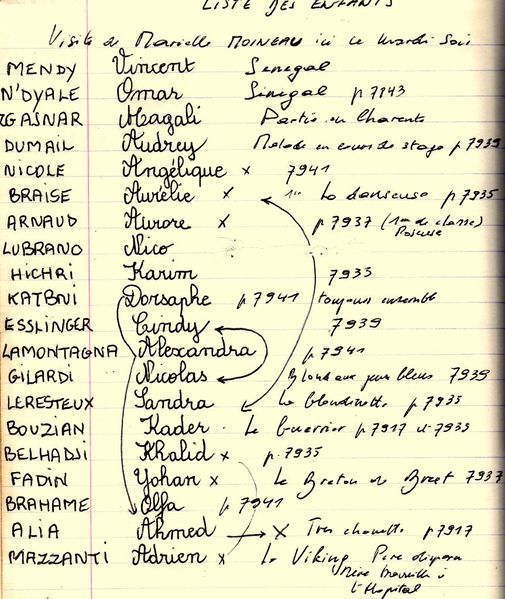 LISTE DES ENFANTS
Visite de Marielle MOINEAU ici ce mardi soir
MENDY Vincent Senegal
N'DYALE Omar Sénégal p 7943
GASNAR Magali Partie en Charente
DUMAIL Audrey Malade en cours de stage p 7939
NICOLE Angélique x 7941
BRAISE Aurélie x La danseuse p 7935
ARNAUD Aurore x p 7937 (1ère de classe)
Poseuse
LUBRANO Nico
HICHRI Karim 7935
KATBNI Dorsaphe p 7941 toujours ensemble
ESSLINGER Cindy 7939
LAMONTAGNA Alexandra p 7941
GILARDI Nicolas Blond aux yeux bleus 7939
LERESTEUX Sandra La blondinette p 7935
BOUZIAN Kader Le Guerrier p 7917 et 7935
BELHADJI Khalid x p. 7935
FADIN Yohan x Le Breton de Brest 7937
BRAHAME Olfa p 7941
ALIA Ahmed → X Très chouette p 7917
MAZZANTI Adrien x Le Viking Père disparu
Mère travaille à
l'Hopital